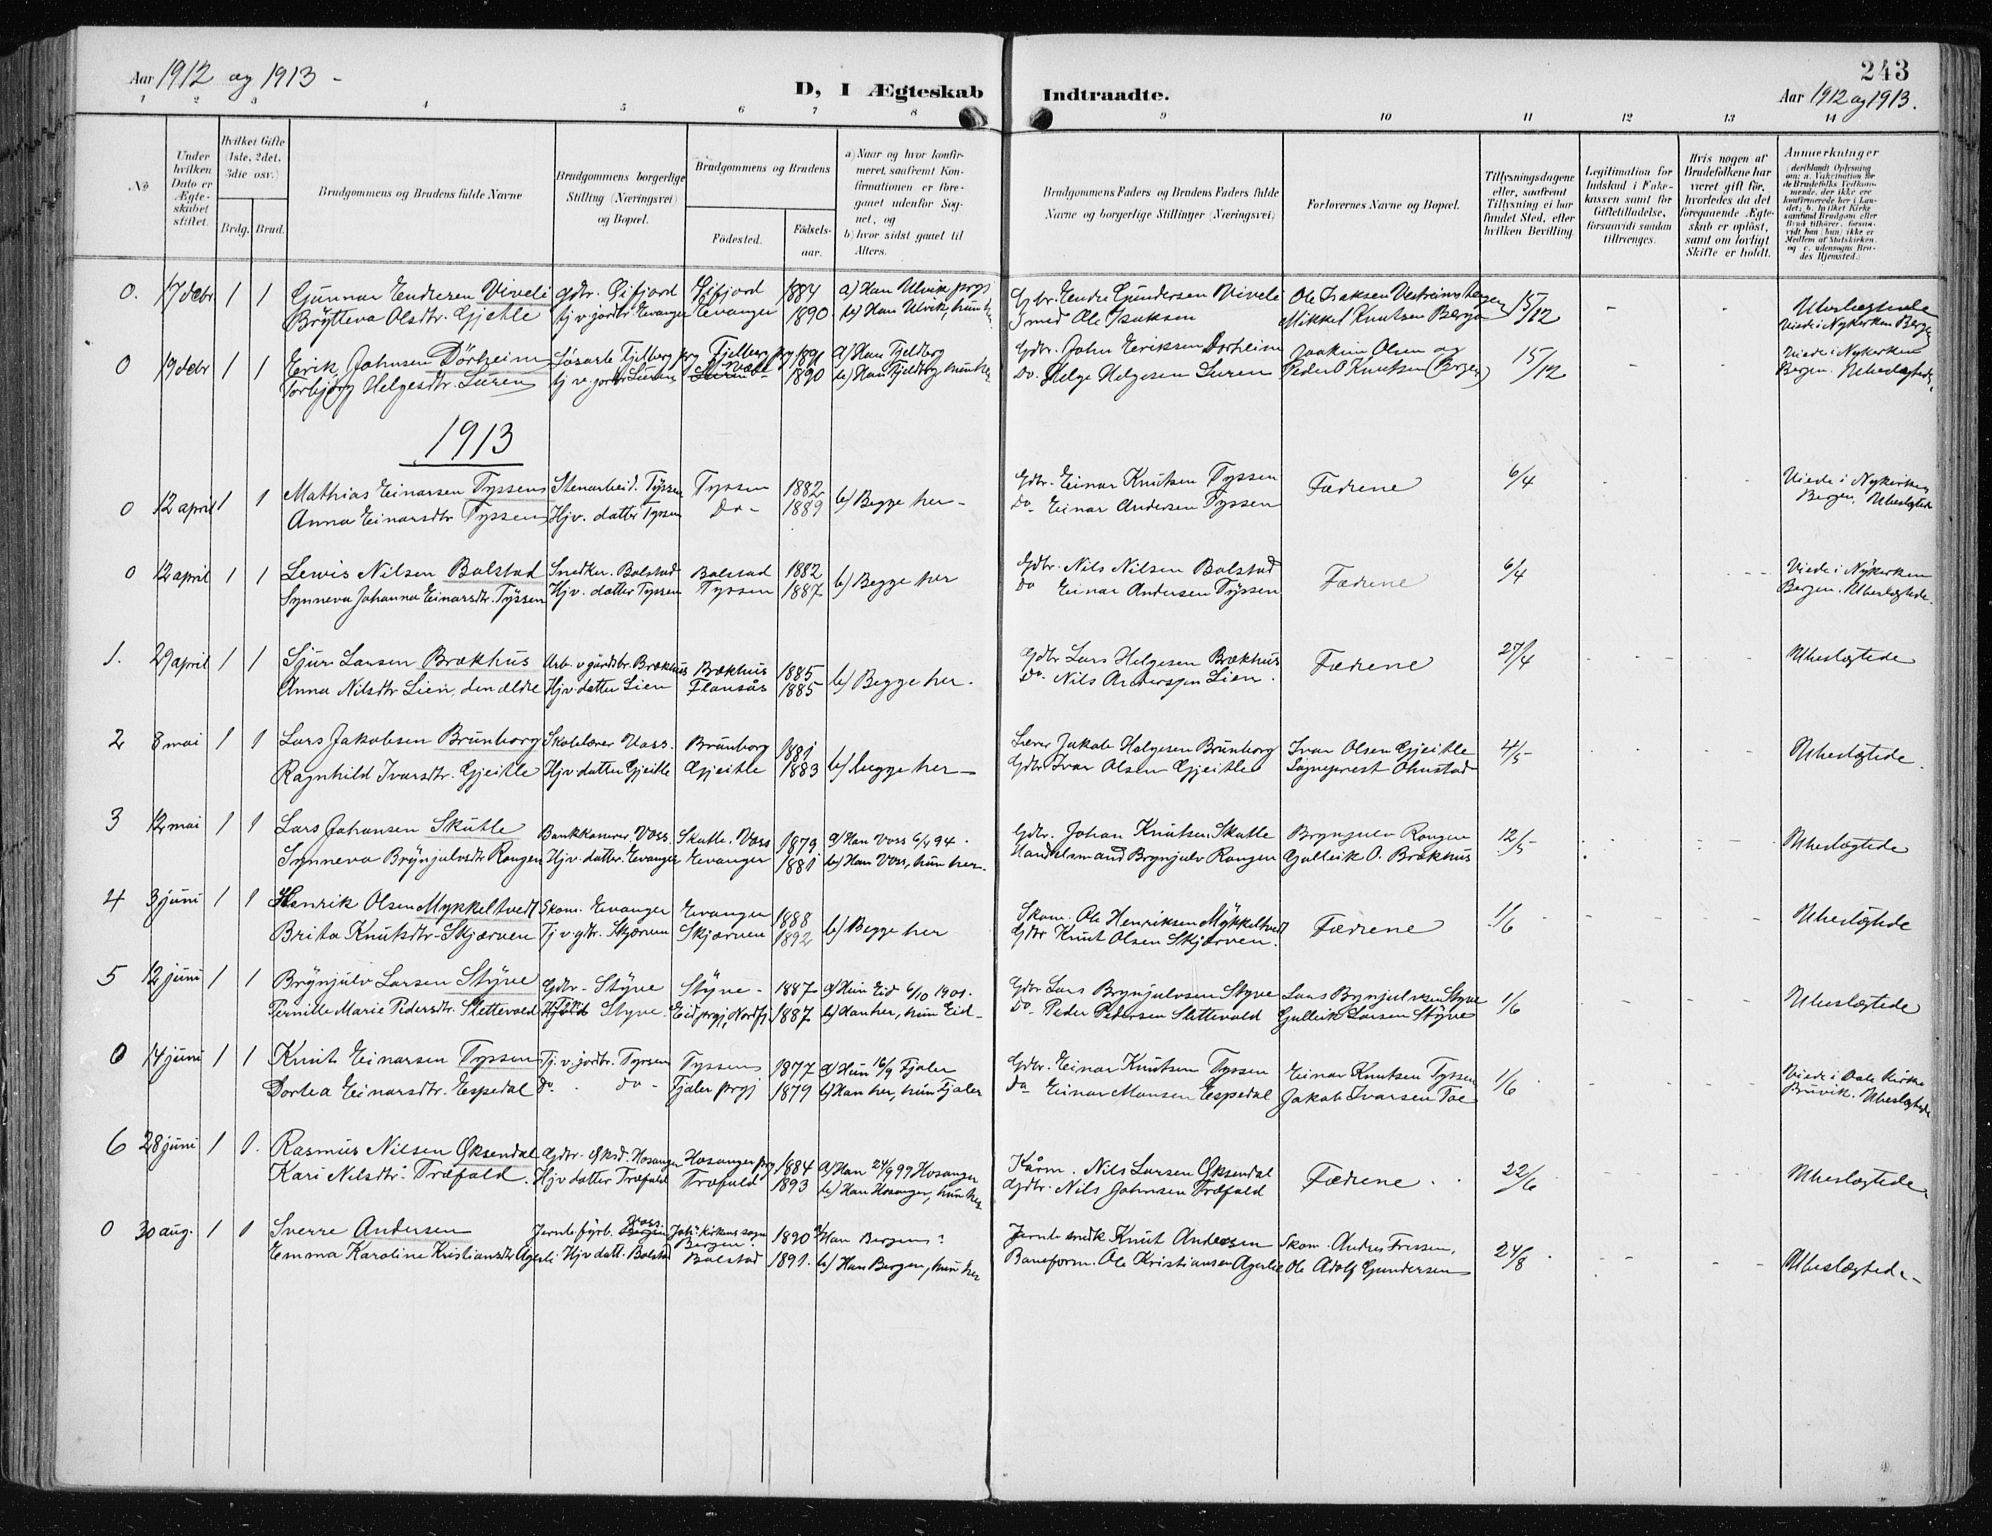 Aar 1912 og 1913 -
D, I Ægteskab Indtraadte.
243
Aar 1912 og 1913.
1 2 3 4 5 6 7 8 9 10 11 12 13 14
No
Under hvilken Dato er Ægteskabet stiftet.
Hvilket Gifte (1ste, 2det, 3die osv.)
Brdg. Brud.
Brudgommens og Brudens fulde Navne
Brudgommens borgerlige Stilling (Næringsvei) og Bopæl.
Brudgommens og Brudens
Fødested. Fødselsaar.
a) Naar og hvor konfirmeret, saafremt Konfirmationen er foregaaet udenfor Sognet, og
b) hvor sidst gaaet til Alters.
Brudgommens Faders og Brudens Faders fulde Navne og borgerlige Stillinger (Næringsvei)
Forlovernes Navne og Bopæl.
Tillysningsdagene eller, saafremt Tillysning ei har fundet Sted, efter hvilken Bevilling.
Legitimation for Indskud i Enkekassen samt for Giftetilladelse, forsaavidt saadan tiltrænges.
Hvis nogen af Brudefolkene har været gift før, hvorledes da det foregaaende Ægteskab er opløst, samt om lovligt Skifte er holdt.
Anmerkninger
0. 17 debr 1 1 Gunnar Endresen Viveli Gdbr. Øifjord Øifjord 1884 a) Han Ulvik prgj Gbr. Endre Gundersen Viveli Ole Isaksen Vestreim Bergen 15/12 Ubeslægtede
Brytteva Olsdtr. Gjetle tj v. jordbr. Evanger Evanger 1890. b) Han Ulvik, hun her. Smed Ole Isaksen Mikkel Knutsen Bergo Viede i Nykirken Bergen
0 19 debr 1 1 Erik Johnsen Dörheim Løsarb. Fjelberg prg Fjelberg prg 1891 a) Han Fjelberg Gdbr. John Eriksen Dorheim Joakim Olsen og 15/12 - - Viede i Nykirken
Torbjörg Helgesdtr. Luren tj. v. jordbr Luren 1890 b) Han Fjeldberg, hun her Do. Helge Helgesen Luren Peder O Knutsen (Bergen) Bergen. Ubeslægtede.
1913
0 12 april 1 1 Mathias Einarsen Tyssen Stenarbeid. Tyssen Tyssen 1882 b) Begge her - Gdbr. Einar Knutsen Tyssen Fædrene 6/4 Viede i Nykirken
Anna Einarsdtr Tyssen Hjv. datter Tyssen Do - 1889 Do Einar Andersen Tyssen Bergen. Ubeslægtede
0 12 april 1 1 Lewis Nilsen Bolstad Snedker. Bolstad Bolstad 1882 b) Begge her Gdbr. Nils Nilsen Bolstad Fædrene 6/4 Viede i Nykirken
Synneva Johanna Einarsdtr. Tyssen Hjv. datter Tyssen Tyssen 1887 Do Einar Andersen Tyssen Bergen. Ubeslægtede.
1. 29 april 1 1 Sjur Larsen Brækhus Arb. v gårdsbr. Brækhus Brækhus 1885 b) Begge her. Gdbr Lars Helgesen Brækhus Fædrene 27/4 Ubeslægtede
Anna Nilsdtr Lien, den ældre Hjv. datter Lien Flansås 1885 Do. Nils Andersen Lien.
2 8 mai 1 1 Lars Jakobsen Brunborg Skolelærer Voss. Brunborg 1881 b) begge her - Lærer Jakob Helgesen Brunborg Ivar Olsen Gjeitle 4/5 Ubeslegtede.
Ragnhild Ivarsdtr. Gjeitle Hjv. datter Gjeitle Gjeitle 1883 Gdbr Ivar Olsen Gjeitle Sogneprest Ohnstad
3 12 mai 1 1 Lars Johansen Skutle Bankkasserer Voss Skutle. Voss 1879 a) Han Voss 6/5 94. Gdbr. Johan Knutsen Skutle Brynjulv Rongen 12/5 Ubeslægtede
Synneva Brynjulvsdtr Rongen Hjv. datter. Evanger Evanger 1881 b) Han Voss, hun her. Handelsmand Brynjulv Rongen Gulleik O. Brækhus
4 3 juni 1 1 Henrik Olsen Mykkeltvedt Skom. Evanger Evanger 1888 b) Begge her Skom. Ole Henriksen Mykkeltvedt Fædrene 1/6 Ubeslegtede
Brita Knutsdtr. Skjærven Tj v gdbr. Skjærven Skjærven 1892 Gdbr Knut Olsen Skjærven.
5 12 juni 1 1 Brynjulv Larsen Styve Gdbr - Styve Styve - 1887 a) Hun Eid 6/10 1901. Gdbr Lars Brynjulvsen Styve Lars Brynjulvsen Styve 1/6 Ubeslægtede
Pernille Marie Pedersdtr. Slettevold Styve. Eid prgj, Nordfj 1887 b) Han her, hun Eid - Do. Peder Pedersen Slettevold Gulleik Larsen Styve
0 14 juni 1 1 Knut Einarsen Tyssen Tj. v. jordbr. Tyssen Tyssen 1877 a) Hun 16/9 Fjaler Gdbr. Einar Knutsen Tyssen Einar Knutsen Tyssen 1/6 Viede i Dale Kirke
Dortea Einarsdtr. Espedal Do. do - Fjaler prgj 1879 b) Han her, hun Fjaler Do Einar Monsen Espedal Jakob Ivarsen Toe Bruvik. Ubeslægtede
6 28 juni 1 1. Rasmus Nilsen Øksendal Gdbr - Øksd. Hosanger Hosanger prg 1884 a) Han 24/9 99 Hosanger Kårm. Nils Larsen Øksendal Fædrene 22/6 Ubeslegtede
Kari Nilsdtr. Træfald. Hjv datter Træfald Træfald 1893 b) Han Hosanger, hun her Gdbr. Nils Johnsen Træfald
0 30 aug. 1 1 Sverre Andersen Jernb. fyrb. Voss Joh. kirkens sogn Bergen. 1890 a) Han Bergen? Jernb smidk Knut Andersen Skom. Andreas Fressen. 24/8 Ubeslægtede -
Emma Karoline Kristiansdtr Agerli Hjv datt. Bolstad Bolstad 1891. b) Han Bergen, hun her Baneform. Ole Kristiansen Agerlie Ole Adolf Gundersen